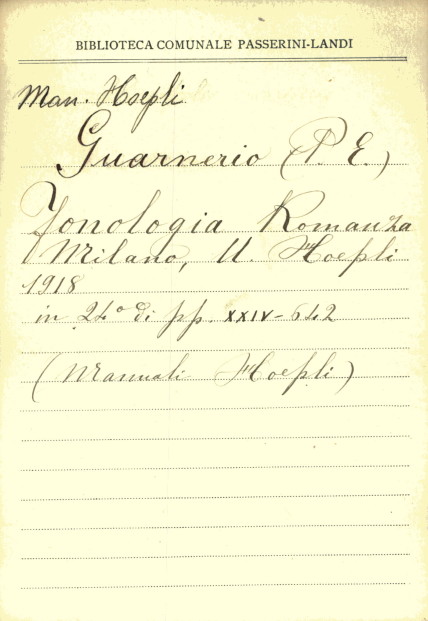 BIBLIOTECA COMUNALE PASSERINI-LANDI
Man. Hoepli
Guarnerio (P. E.)
Fonologia Romanza
Milano, U. Hoepli
1918
in 24° di pp. XXIV-642
(Manuali Hoepli)